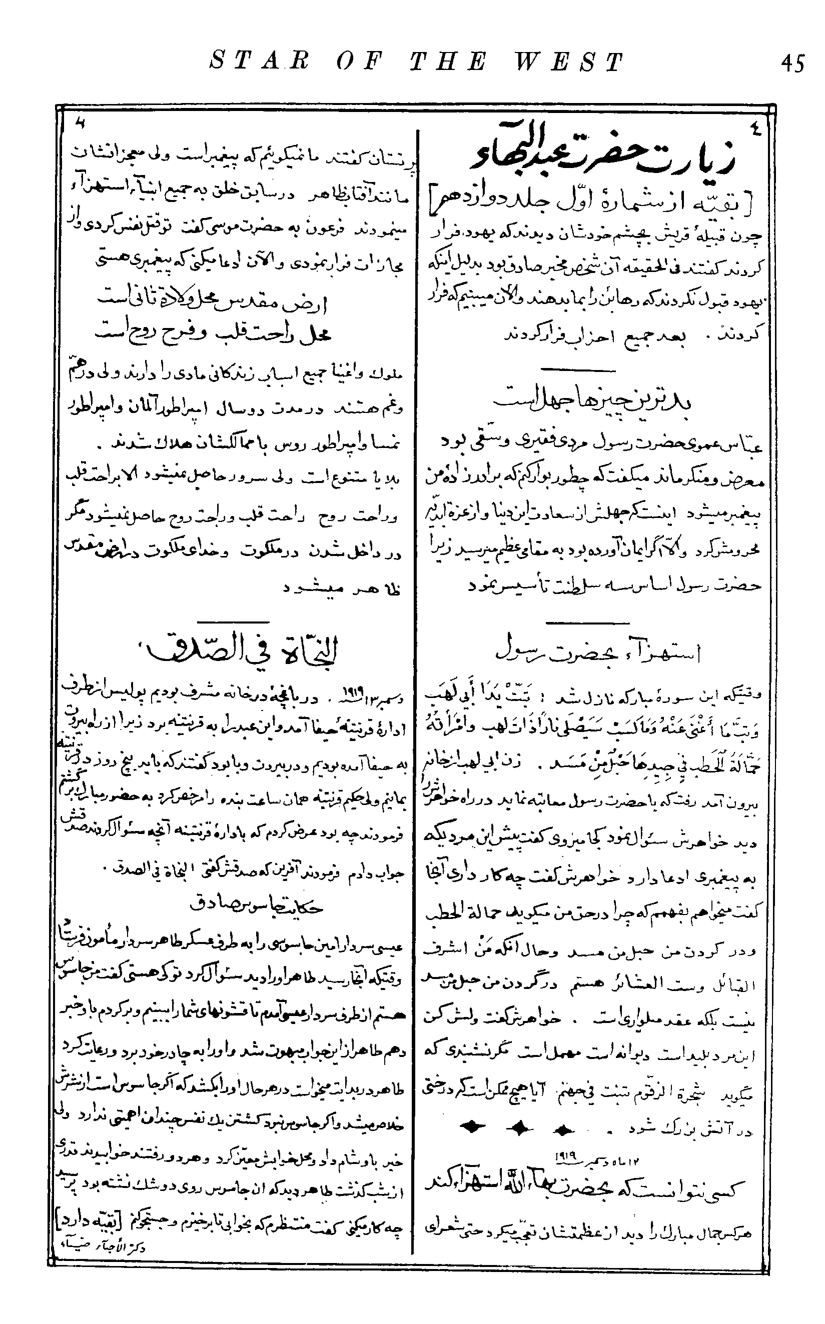 STAR OF THE WEST
45
٤
زیارت حضرت عبدالبهاء
[بقیّه از شمارهٔ اوّل جلد دوازدهم]
چون قبیلهٔ قریش بچشم خودشان دیدند که یهود فرار
کردند گفتند فی الحقیقه آن شخص مخبر صادق بود بدلیل اینکه
یهود قبول نکردند که رهائن را بما بدهند والآن میبینیم که فرار
کردند . بعد جمیع احزاب فرار کردند
بدترین چیزها جهل است
عبّاس عموی حضرت رسول مردی فقیری و سقی بود
معرض و منکر ماند میگفت که چطور بوار کنم که برادرزادهٔ من
پیغمبر میشود اینست که جهلش از سعادت این دنیا و از عزة ابدیّه
محرومش کرد والّا اگر ایمان آورده بود به مقامی عظیم میرسید زیرا
حضرت رسول اساس سه سلطنت تأسیس نمود
استهزآء بحضرت رسول
وقتیکه این سورهٔ مبارکه نازل شد : تَبَّتْ يَدَا أَبِي لَهَب
وَتَبَّ مَا أَغْنَى عَنْهُ وَمَا كَسَبَ سَيَصْلَى نَارًا ذَاتَ لَهَب وَامْرَأَتُهُ
حَمَّالَةَ الْحَطَبِ فِي جِيدِهَا حَبْلٌ مِنْ مَسَد . زن ابی لهب از خانه
بیرون آمد رفت که با حضرت رسول معاتبه نماید در راه خواهرش را
دید خواهرش سئوال نمود کجا میروی گفت پیش این مردیکه
به پیغمبری ادعا دارد خواهرش گفت چه کار داری آنجا
گفت میخواهم بفهمم که چرا در حق من میگوید حمالة الحطب
ودر گردن من حبل من مسد وحال آنکه مَنْ اشرف
القبائل وست العشائر هستم درگردن من حبل من مسد
نیست بلکه عقد مبلواری است . خواهرش گفت ولش کن
این مرد بلید است دیوانه است مهمل است مگر نشنیدی که
میگوید شجرة الزقّوم تنبت فی جهنم آیا هیچ ممکن است که درختی
در آتش بزرگ شود .
١٢ ماه دسمبر سنه ١٩١٩
کسی نتوانست که بحضرت بهآءالله استهزاء کند
هرکس جمال مبارک را دید از عظمتشان تعجّب میکرد حتی شعرای
٤
پرنستان گفتند ما نمیگوئیم که پیغمبر است ولی معجزاتشان
مانند آفتاب ظاهر در سابق خلق به جمیع انبیآء استهزآء
مینمودند فرعون به حضرت موسی گفت تو قتل نفس کردی واز
مجازات فرار نمودی والآن ادعا میکنی که پیغمبری هستی
ارض مقدس محل ولادة ثانی است
محل راحت قلب وفرح روح است
ملوک واغنیا جمیع اسباب زندگانی مادی را دارند ولی در همّ
وغم هستند در مدت دو سال امپراطور آلمان وامپراطور
نمسا وامپراطور روس با ممالکشان هلاک شدند .
بلایا متنوع است ولی سرور حاصل نمیشود الا براحت قلب
وراحت روح راحت قلب وراحت روح حاصل نمیشود مگر
در داخل شدن در ملکوت وخدای ملکوت در ارض مقدس
ظاهر میشود
النجّاة في الصّدق
دسمبر ١٣ سنه ١٩١٩ . در باغچهٔ درخانه مشرف بودیم پولیس از طرف
ادارهٔ قرنتینهٔ حیفا آمد واین عبد را به قرنتینه برد زیرا از راه بیروت
به حیفا آمده بودیم ودر بیروت وبا بود گفتند که باید پنج روز در قرنتینه
بمانیم ولی حکیم قرنتینه همان ساعت بنده را مرخص کرد به حضور مبارک برگشتم
فرمودند چه بود عرض کردم که بادارهٔ قرنتینه آنچه سئوال کردند صدقش
جواب دادم فرمودند آفرین که صدقش گفتی النجاة في الصدق .
حکایت جاسوس صادق
عیسی سردار امین جاسوسی را به طرف عسکر طاهر سردار مأمون فرستاد
وقتیکه آنجا رسید طاهر اورا دید سئوال کرد تو کی هستی گفت من جاسوس
هستم از طرف سردار عیسی آمدم تا قشونهای شما را ببینم وبرگردم باو خبر
دهم طاهر از این جواب مبهوت شد واورا به چادر خود برد ورعایت کرد
طاهر در بدایت میخواست در هر حال اورا بکشد که اگر جاسوس است از شرش
خلاص میشد واگر جاسوس نبود کشتن یک نفس چندان اهمتی ندارد ولی
خیر باو شام داد ومحل خوابش معیّن کرد وهر دو رفتند خوابیدند قدری
از شب گذشت طاهر دید که ان جاسوس روی دوشک نشته بود پرسید
چه کار میکنی گفت منتظرم که بخوابی تا برخیزم وجستجو کنم [بقیّه دارد]